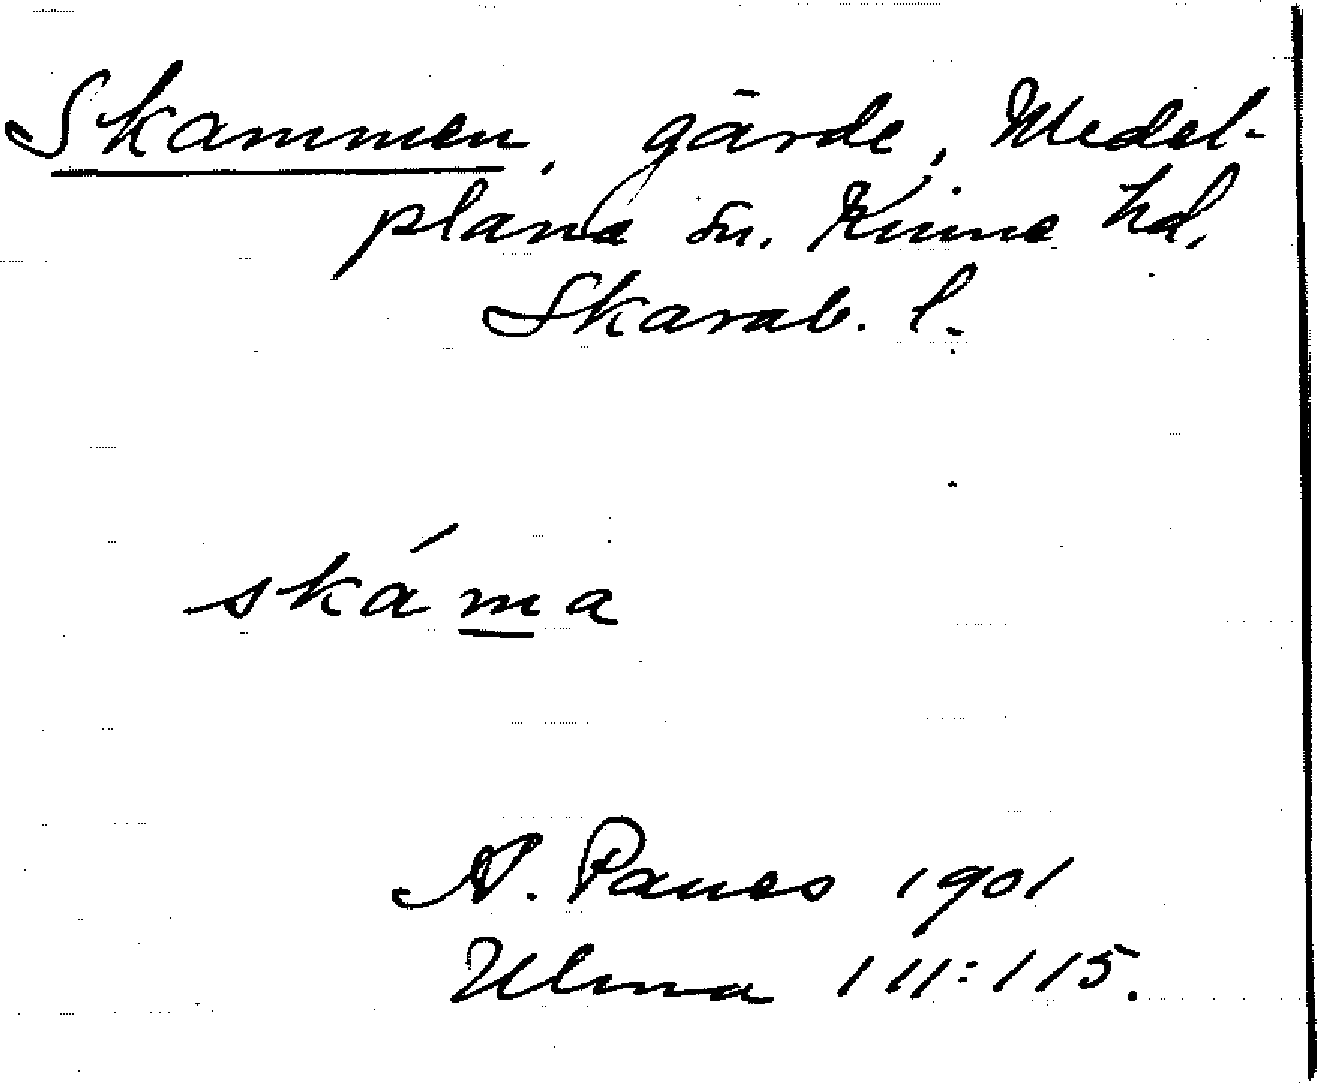 Skammen, gärde, Medel-
plana sn. Kinne hd,
Skarab. l.
skáma
A. Paues 1901
Ulma 111:115.